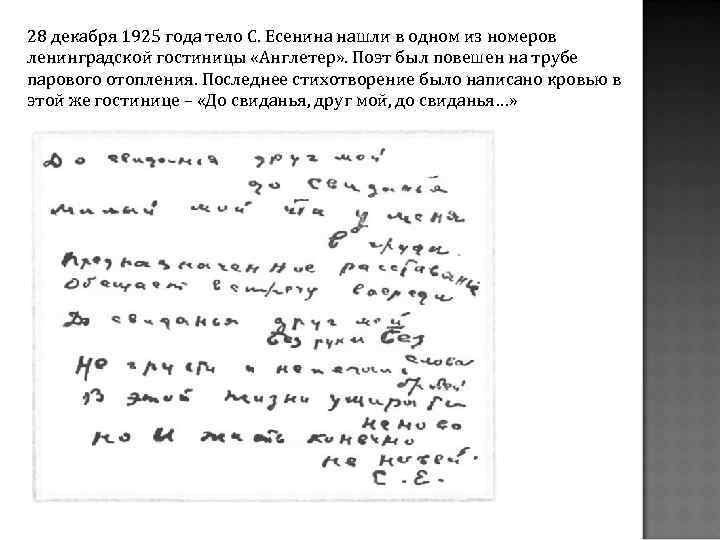 28 декабря 1925 года тело С. Есенина нашли в одном из номеров
ленинградской гостиницы «Англетер». Поэт был повешен на трубе
парового отопления. Последнее стихотворение было написано кровью в
этой же гостинице – «До свиданья, друг мой, до свиданья…»
До свиданья друг мой
до свиданья
милый мой ты у меня
в груди.
Предназначенное расставанье
Обещает встречу впереди
До свиданья друг мой
без руки без
слова
Не грусти и не печаль
бровей
В этой жизни умирать
не ново
но и жить конечно
не новей.
С. Е.